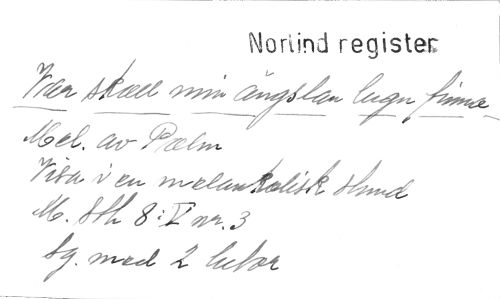 Norlind register
Var skall min ängslan lugn finna
Mel. av Palm
Visa i en melankolisk stund
M. Sth 8:V nr. 3
Sg. med 2 lutor